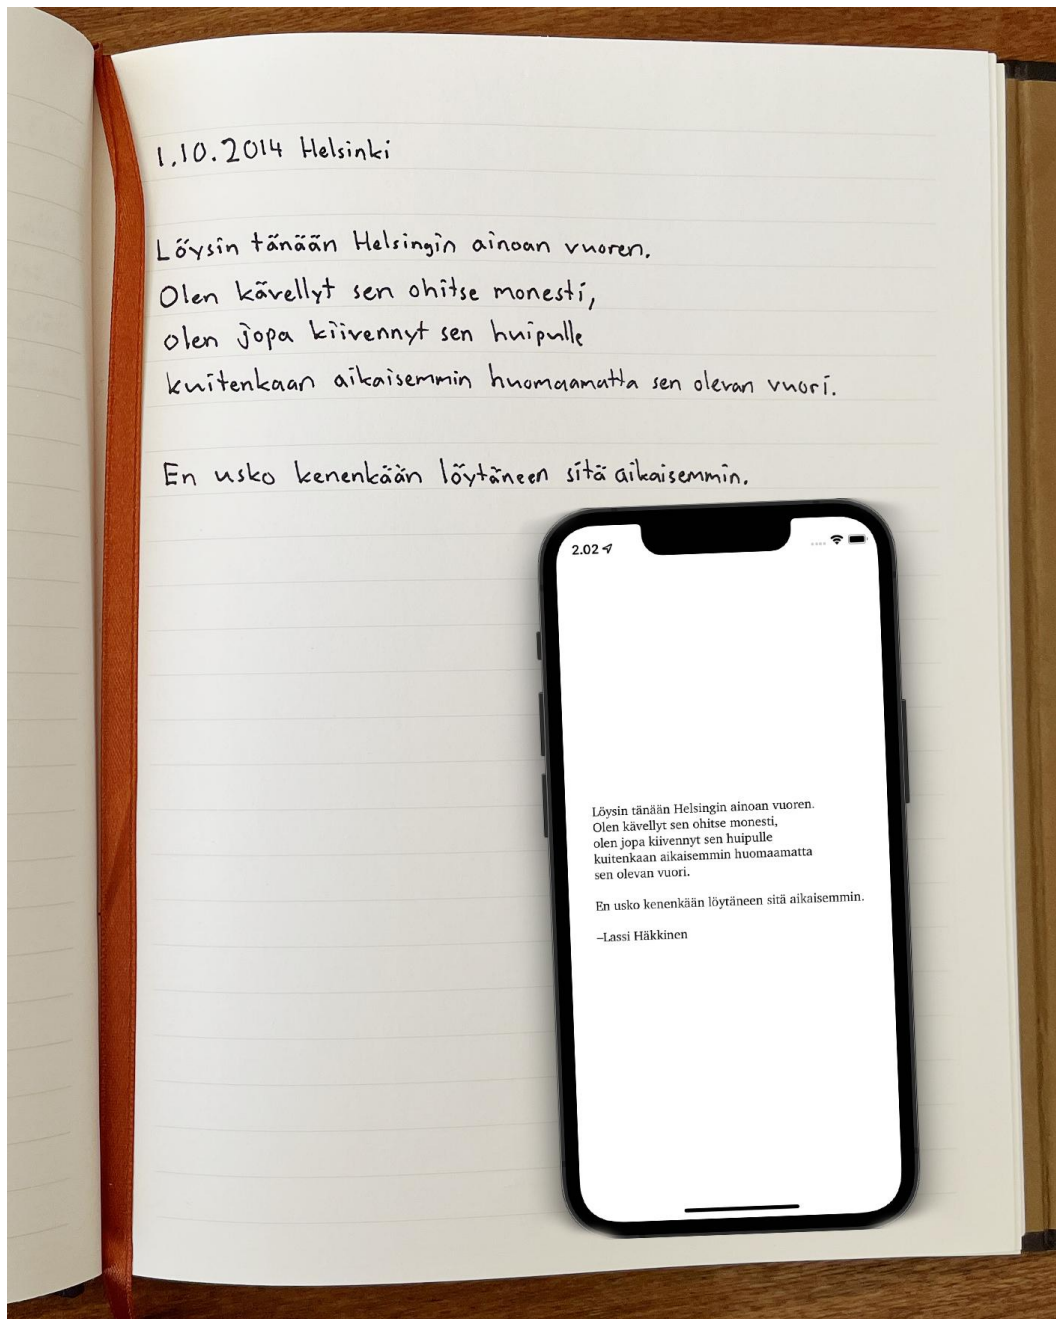 1.10.2014 Helsinki
Löysin tänään Helsingin ainoan vuoren.
Olen kävellyt sen ohitse monesti,
olen jopa kiivennyt sen huipulle
kuitenkaan aikaisemmin huomaamatta sen olevan vuori.
En usko kenenkään löytäneen sitä aikaisemmin.
2.02
Löysin tänään Helsingin ainoan vuoren.
Olen kävellyt sen ohitse monesti,
olen jopa kiivennyt sen huipulle
kuitenkaan aikaisemmin huomaamatta
sen olevan vuori.
En usko kenenkään löytäneen sitä aikaisemmin.
–Lassi Häkkinen